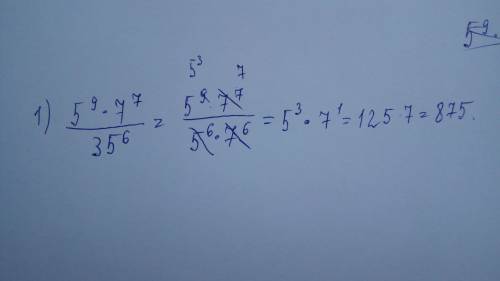 5⁹.
5³ 7
1) 5⁹·7⁷/35⁶ = 5⁹·7⁷/5⁶·7⁶ = 5³·7¹ = 125·7 = 875.